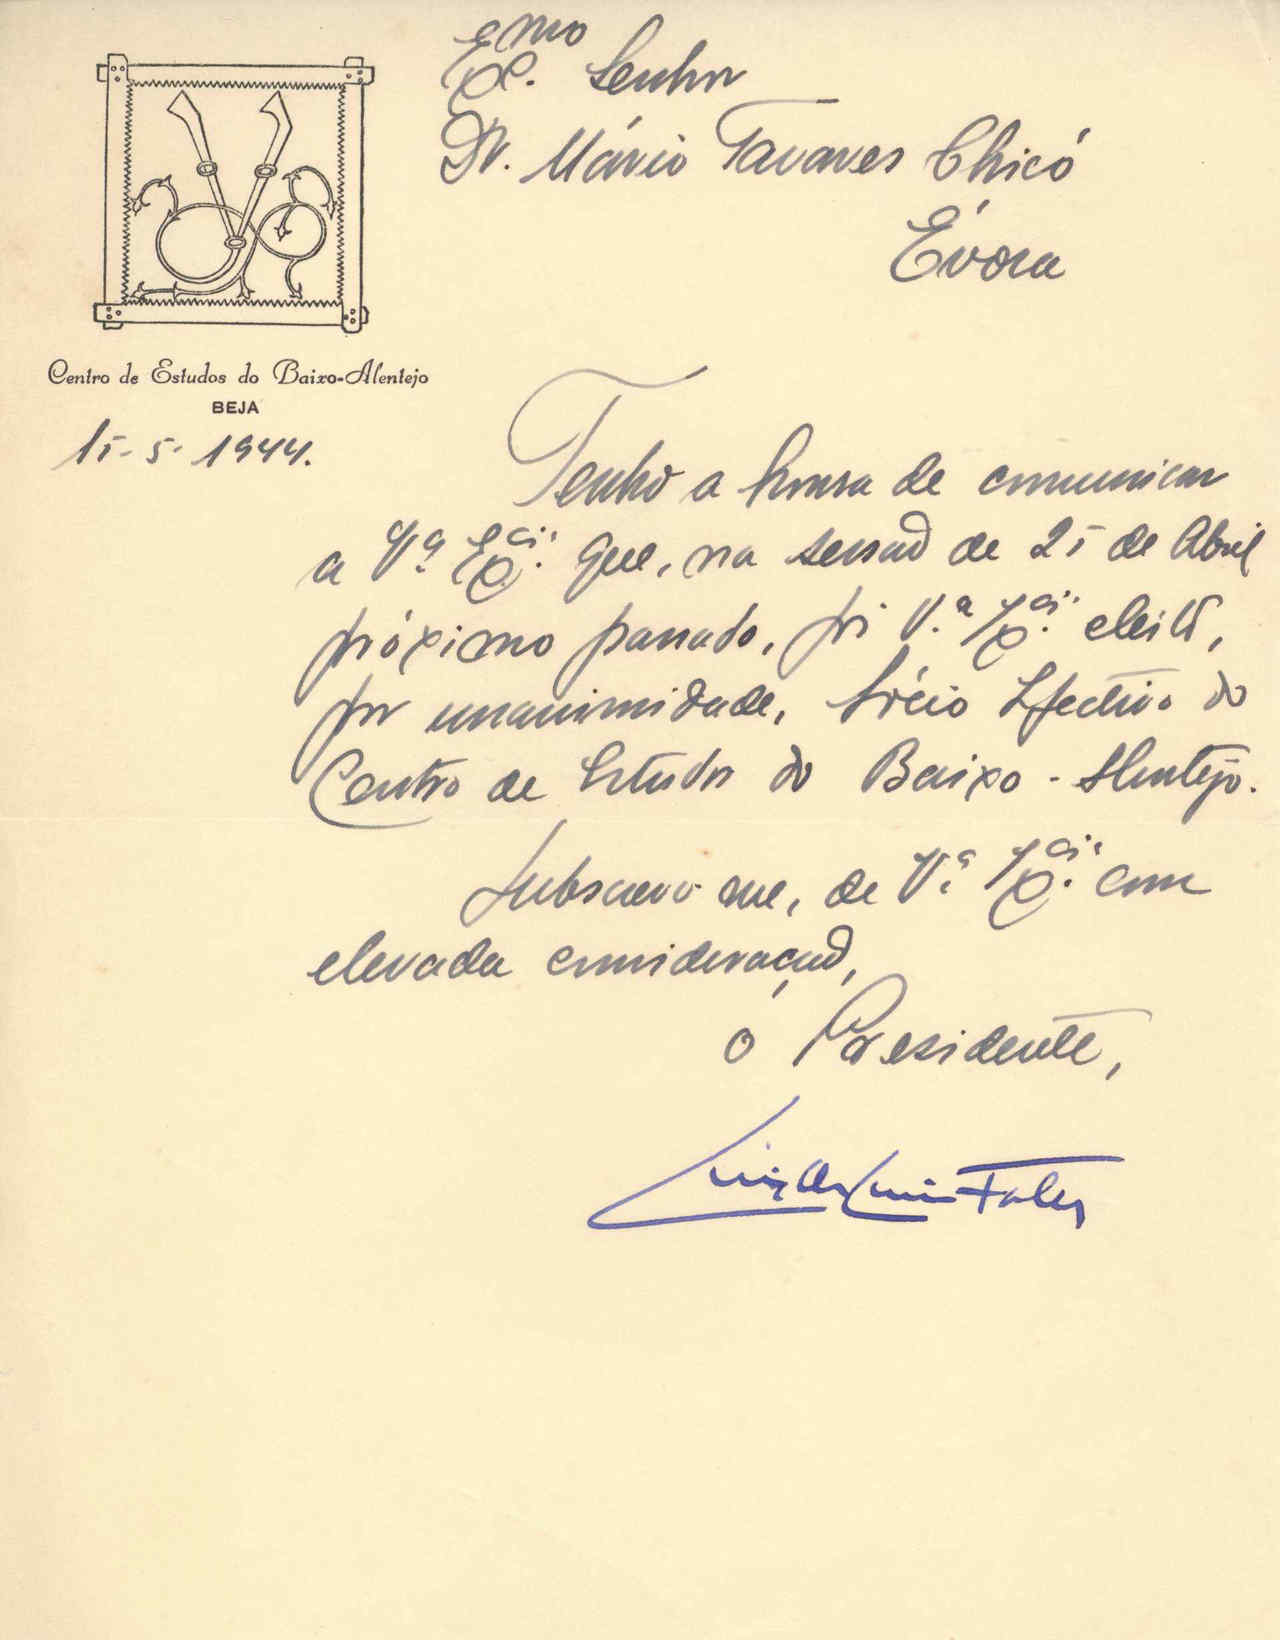 Exmo. Senhor
Dr. Mário Tavares Chicó
Évora
Centro de Estudos do Baixo-Alentejo
BEJA
15-5-1944.
Tenho a honra de comunicar
a V.ª Ex.cia. que, na sessão de 25 de Abril
próximo passado, foi V.ª Ex.cia. eleito,
por unanimidade, Sócio Efectivo do
Centro de Estudos do Baixo-Alentejo.
Subscrevo-me, de V.ª Ex.cia. com
elevada consideração,
O Presidente,